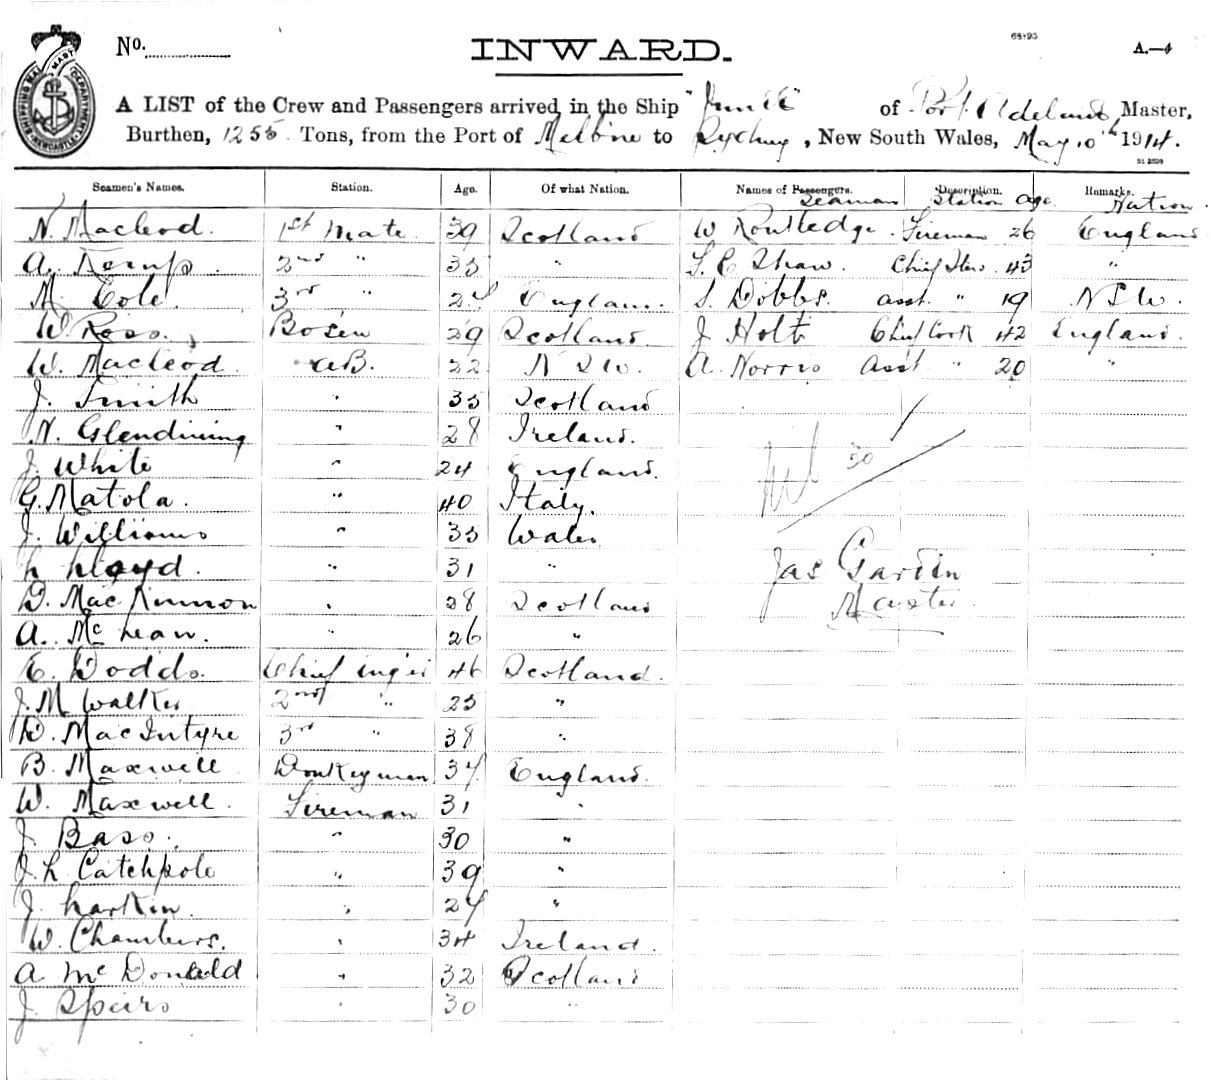 No.
INWARD.
68+95
A.—4
A LIST of the Crew and Passengers arrived in the Ship of Port Adelaide, Master,
Burthen, 1255 Tons, from the Port of Melbne to Sydney, New South Wales, May 10th 1914.
Seamen's Names. Station. Age. Of what Nation. Names of Passengers. Description. Remarks.
Seaman Station Age Nation
N. Macleod. 1st Mate. 39 Scotland W Routledge. Fireman 26 England
A. Kemp. 2nd " 35 " S. E. Shaw. Chief Stew. 43 "
M. Cole. 3rd " 24 England. S. Dobbs. asst. " 19 NSW.
W. Ross. Bosen 29 Scotland. J Holt Chief Cook 42 England.
W. Macleod. AB. 22 N S W. A. Norris Asst " 20 "
J. Smith " 35 Scotland
N. Glendining " 28 Ireland.
J. White " 24 England.
G. Matola. " 40 Italy.
J. Williams " 35 Wales
L Lloyd. " 31 "
D. MacKinnon " 28 Scotland
A. McLean. " 26 "
E. Dodds. Chief Eng'er 46 Scotland.
J. M Walker 2nd " 25 "
D. MacIntyre 3rd " 38 "
B. Maxwell Donkeyman 34 England.
W. Maxwell. Fireman 31 "
J. Bass. " 30 "
J. L Catchpole " 39 "
J. Larkin. " 24 "
W. Chambers. " 34 Ireland.
A McDonald " 32 Scotland
J. Speirs " 30 "
30
Jas Gardin
Master